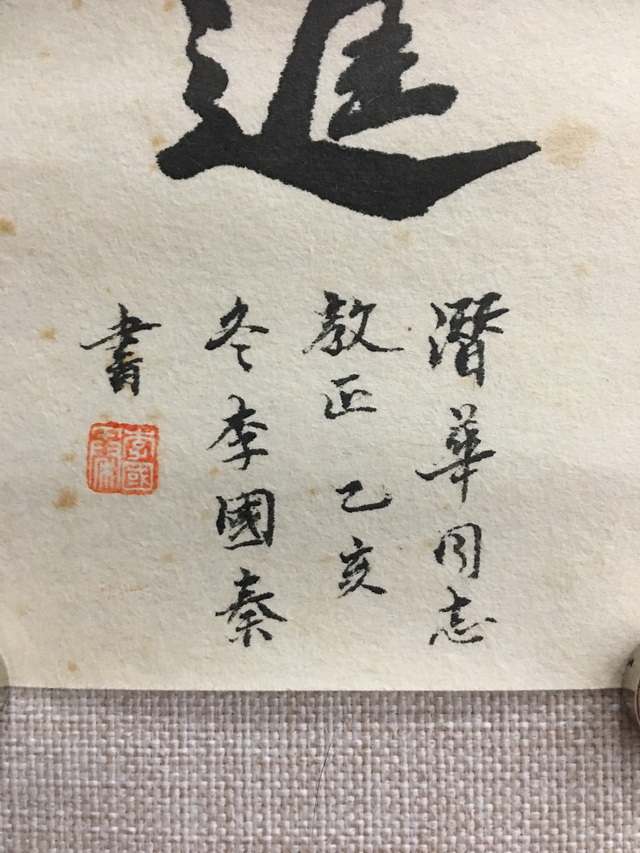 進
潛華同志
教正 乙亥
冬李國秦
書
李國